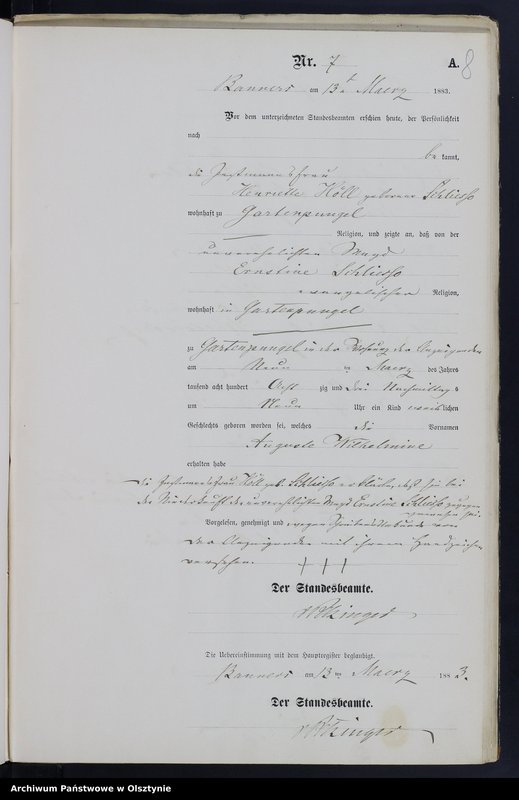 Nr. 7 A. 8
Banners am 13ten Maerz 1883.
Vor dem unterzeichneten Standesbeamten erschien heute, der Persönlichkeit
nach
be kannt,
die Instmannsfrau
Henriette Höll geborene Schliesso
wohnhaft zu Gartenpungel
Religion, und zeigte an, daß von der
unverehelichten Magd
Ernstine Schliesso
evangelischer Religion,
wohnhaft in Gartenpungel
zu Gartenpungel in der Wohnung der Anzeigenden
am Neun ten Maerz des Jahres
tausend acht hundert Acht zig und drei Nachmittag s
um Neun Uhr ein Kind weib lichen
Geschlechts geboren worden sei, welches die Vornamen
Auguste Wilhelmine
erhalten habe
Die Instmannsfrau Höll geb. Schliesso erklärte, daß sie bei
der Niederkunft der unverehelichten Magd Ernstine Schliesso zugegen
gewesen sei.
Vorgelesen, genehmigt und wegen Schreibensunkunde von
der Anzeigenden mit ihrem Handzeichen
versehen. + + +
Der Standesbeamte.
Die Uebereinstimmung mit dem Hauptregister beglaubigt.
Banners am 13ten Maerz 1883.
Der Standesbeamte.
Archiwum Państwowe w Olsztynie